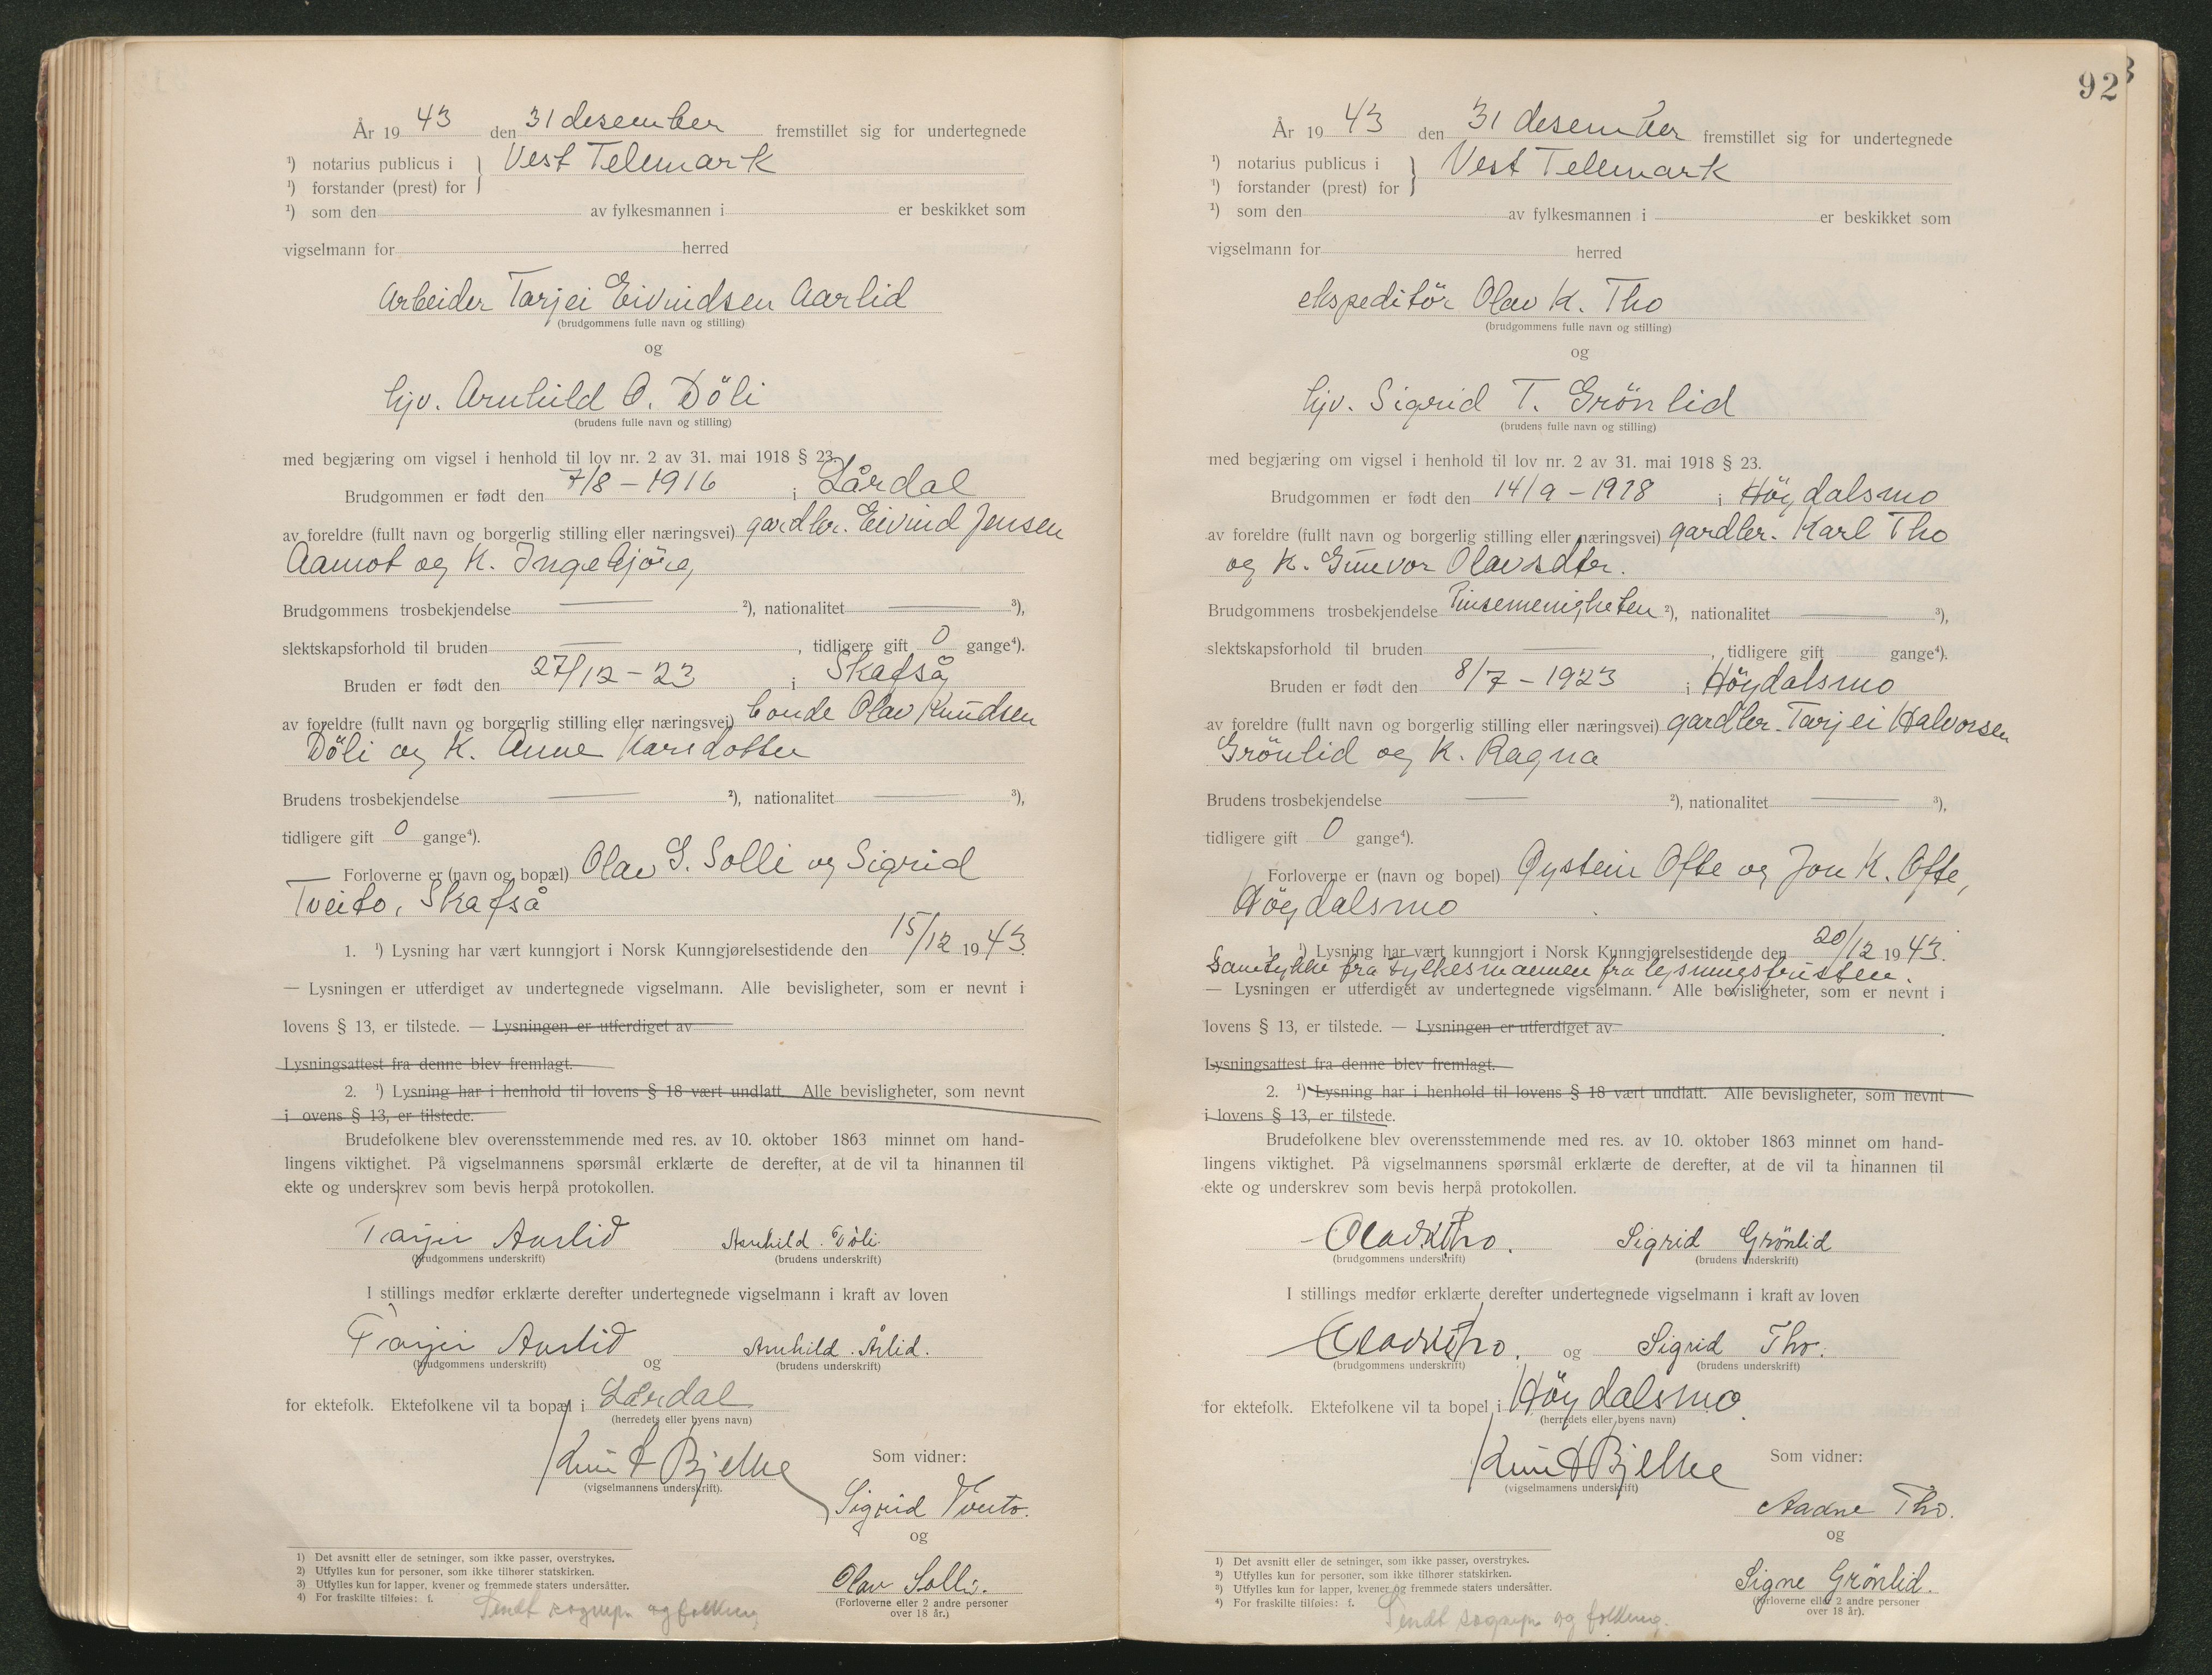 År 19 43 den 31 desember fremstillet sig for undertegnede
¹) notarius publicus i } Vest Telemark
¹) forstander (prest) for
¹) som den av fylkesmannen i er beskikket som
vigselmann for herred
Arbeider Tarjei Eivindsen Aarlid
(brudgommens fulle navn og stilling)
og
hjv. Arnhild O. Döli
(brudens fulle navn og stilling)
med begjæring om vigsel i henhold til lov nr. 2 av 31. mai 1918 § 23.
Brudgommen er født den 7/8 - 1916 i Lårdal
av foreldre (fullt navn og borgerlig stilling eller næringsvei) gardbr. Eivind Jensen
Aamot og K. Ingebjörg
Brudgommens trosbekjendelse — ²), nationalitet — ³),
slektskapsforhold til bruden — , tidligere gift 0 gange⁴).
Bruden er født den 27/12 - 23 i Skafså
av foreldre (fullt navn og borgerlig stilling eller næringsvei) bonde Olav Knudsen
Döli og K. Anne Karsdotter
Brudens trosbekjendelse — ²), nationalitet — ³),
tidligere gift 0 gange⁴).
Forloverne er (navn og bopæl) Olav G. Solli og Sigrid
Tveito, Skafså
1. ¹) Lysning har vært kunngjort i Norsk Kunngjørelsestidende den 15/12 19 43.
— Lysningen er utferdiget av undertegnede vigselmann. Alle bevisligheter, som er nevnt i
lovens § 13, er tilstede. — Lysningen er utferdiget av
Lysningsattest fra denne blev fremlagt.
2. ¹) Lysning har i henhold til lovens § 18 vært undlatt. Alle bevisligheter, som nevnt
i ovens § 13, er tilstede.
Brudefolkene blev overensstemmende med res. av 10. oktober 1863 minnet om hand-
lingens viktighet. På vigselmannens spørsmål erklærte de derefter, at de vil ta hinannen til
ekte og underskrev som bevis herpå protokollen.
Tarjei Aarlid Arnhild Döli.
(brudgommens underskrift) (brudens underskrift)
I stillings medfør erklærte derefter undertegnede vigselmann i kraft av loven
Tarjei Aarlid og Arnhild Årlid.
(brudgommens underskrift) (brudens underskrift)
for ektefolk. Ektefolkene vil ta bopæl i Lårdal
(herredets eller byens navn)
Knut Bjelke Som vidner:
(vigselmannens underskrift).
Sigrid Tveito.
og
Olav Solli.
(Forloverne eller 2 andre personer
over 18 år.)
1) Det avsnitt eller de setninger, som ikke passer, overstrykes.
2) Utfylles kun for personer, som ikke tilhører statskirken.
3) Utfylles kun for lapper, kvener og fremmede staters undersåtter.
4) For fraskilte tilføies: f.
Sendt sognepr. og folkereg.
92
År 19 43 den 31 desember fremstillet sig for undertegnede
¹) notarius publicus i } Vest Telemark
¹) forstander (prest) for
¹) som den av fylkesmannen i er beskikket som
vigselmann for herred
ekspeditör Olav K. Tho
(brudgommens fulle navn og stilling)
og
hjv. Sigrid T. Grönlid
(brudens fulle navn og stilling)
med begjæring om vigsel i henhold til lov nr. 2 av 31. mai 1918 § 23.
Brudgommen er født den 14/9 - 1918 i Höydalsmo
av foreldre (fullt navn og borgerlig stilling eller næringsvei) gardbr. Karl Tho
og K. Gunvor Olavsdtr.
Brudgommens trosbekjendelse Pinsemenigheten ²), nationalitet — ³),
slektskapsforhold til bruden — , tidligere gift gange⁴).
Bruden er født den 8/7 - 1923 i Höydalsmo
av foreldre (fullt navn og borgerlig stilling eller næringsvei) gardbr. Tarjei Halvorsen
Grönlid og K. Ragna
Brudens trosbekjendelse — ²), nationalitet — ³),
tidligere gift 0 gange⁴).
Forloverne er (navn og bopel) Øystein Ofte og Jon K. Ofte,
Höydalsmo
1. ¹) Lysning har vært kunngjort i Norsk Kunngjørelsestidende den 20/12 19 43.
Samtykke fra Fylkesmannen fra lysningsfristen.
— Lysningen er utferdiget av undertegnede vigselmann. Alle bevisligheter, som er nevnt i
lovens § 13, er tilstede. — Lysningen er utferdiget av .
Lysningsattest fra denne blev fremlagt.
2. ¹) Lysning har i henhold til lovens § 18 vært undlatt. Alle bevisligheter, som nevnt
i lovens § 13, er tilstede.
Brudefolkene blev overensstemmende med res. av 10. oktober 1863 minnet om hand-
lingens viktighet. På vigselmannens spørsmål erklærte de derefter, at de vil ta hinannen til
ekte og underskrev som bevis herpå protokollen.
Olav K Tho. Sigrid Grönlid
(brudgommens underskrift) (brudens underskrift)
I stillings medfør erklærte derefter undertegnede vigselmann i kraft av loven
Olav K Tho. og Sigrid Tho.
(brudgommens underskrift) (brudens underskrift)
for ektefolk. Ektefolkene vil ta bopel i Höydalsmo
(herredets eller byens navn)
Knut Bjelke Som vidner:
(vigselmannens underskrift)
Aadne Tho.
og
Signe Grönlid.
(Forloverne eller 2 andre personer
over 18 år).
1) Det avsnitt eller de setninger, som ikke passer, overstrykes.
²) Utfylles kun for personer, som ikke tilhører statskirken.
³) Utfylles kun for lapper, kvener og fremmede staters undersåtter.
⁴) For fraskilte tilføies: f.
Sendt sognepr. og folkereg.